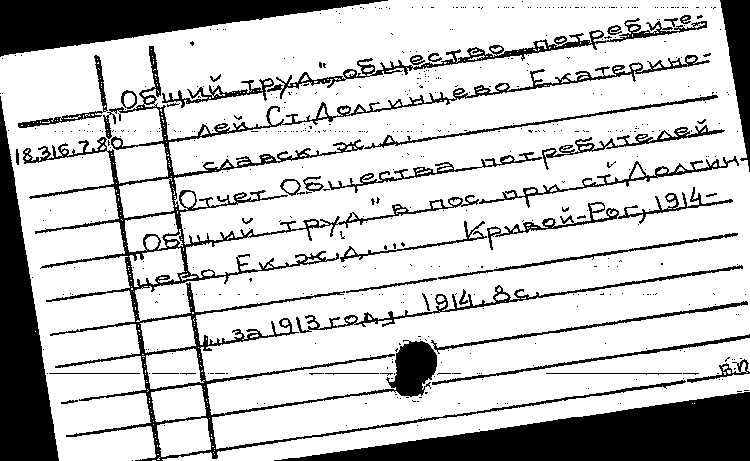 „Общий труд", общество потребите-
лей. Ст. Долгинцево Екатерино-
18.316.7.80
славск. ж.д.
Отчет Общества потребителей
„Общий труд" в пос. при ст. Долгин-
цево, Ек. ж.д. ... Кривой-Рог, 1914-
... за 1913 год, . 1914. 8с.